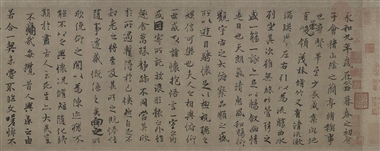 永和九年歲在癸丑暮春之初會
于會稽山陰之蘭亭脩禊事
也群賢畢至少長咸集此地
有崇山峻領茂林脩竹又有清流激
湍暎帶左右引以為流觴曲水
列坐其次雖無絲竹管弦之
盛一觴一詠亦足以暢敘幽情
是日也天朗氣清惠風和暢仰
觀宇宙之大俯察品類之盛
所以遊目騁懷足以極視聽之
娛信可樂也夫人之相與俯仰
一世或取諸懷抱悟言一室之內
或因寄所託放浪形骸之外雖
趣舍萬殊靜躁不同當其欣
於所遇暫得於己快然自足不
知老之將至及其所之既惓情
隨事遷感慨係之矣向之所
欣俛仰之閒以為陳迹猶不
能不以之興懷況脩短隨化終
期於盡古人云死生亦大矣豈
不痛哉每攬昔人興感之由
若合一契未嘗不臨文嗟悼不